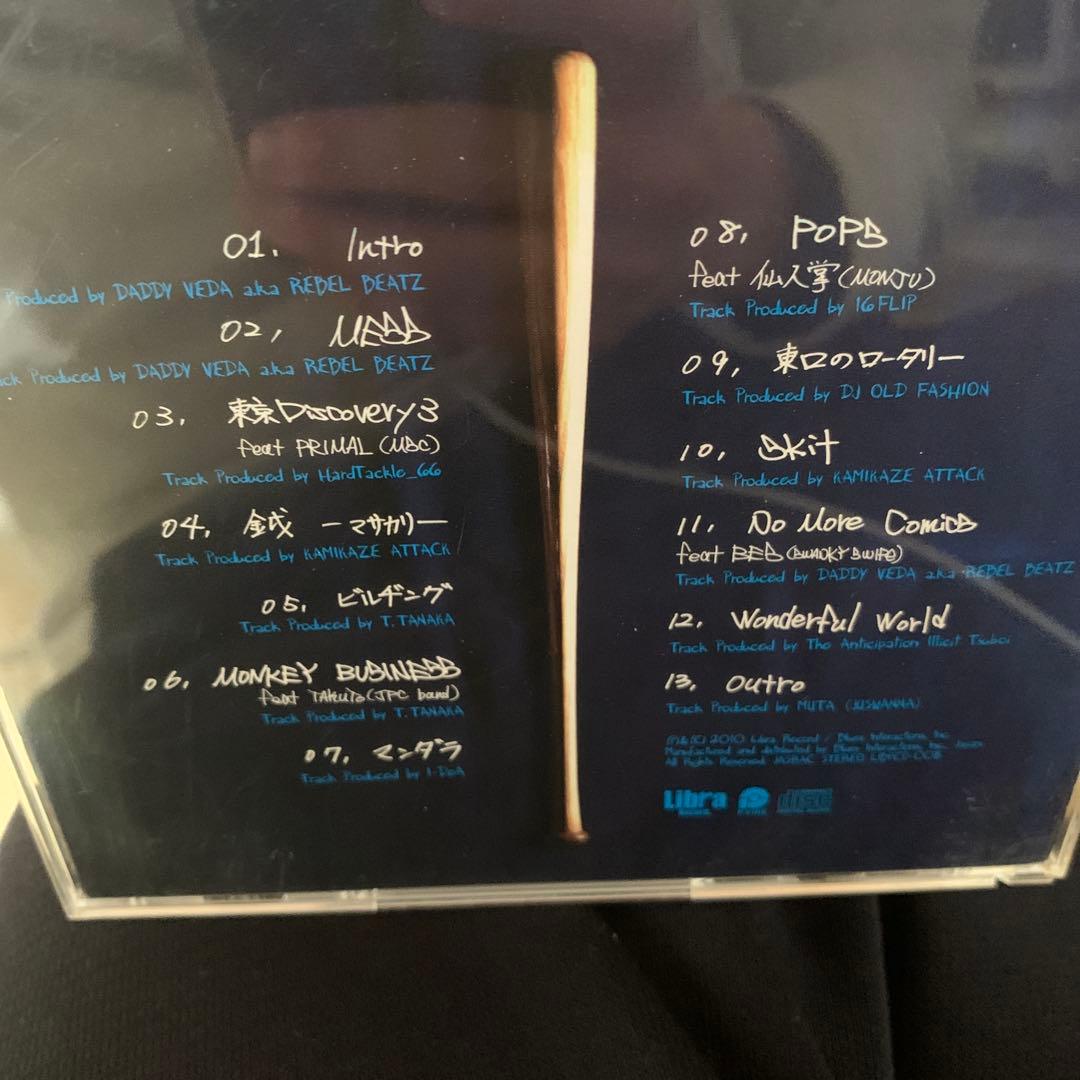 01. Intro
Produced by DADDY VEDA a.k.a REBEL BEATZ
02, MESS
ck Produced by DADDY VEDA a.k.a REBEL BEATZ
03. 東京Discovery3
feat PRIMAL (MSC)
Track Produced by HardTackle_66
04. 鉞 ーマサカリー
Track Produced by KAMIKAZE ATTACK
05. ビルヂング
Track Produced by T.TANAKA
06. MONKEY BUSINESS
feat TAKUTO (JPC band)
Track Produced by T.TANAKA
07. マンダラ
Track Produced by I-DeA
08, POPS
feat 仙人掌 (MONJU)
Track Produced by 16FLIP
09, 東口のロータリー
Track Produced by DJ OLD FASHION
10. Skit
Track Produced by KAMIKAZE ATTACK
11. No More Comics
feat BES (SWANKY SWIPE)
Track Produced by DADDY VEDA a.k.a REBEL BEATZ
12. Wonderful World
Track Produced by The Anticipation Illicit Tsuboi
13. Outro
Track Produced by MUTA (JUSWANNA)
Ⓟ&(C) 2010 Libra Record / Blues Interactions, Inc.
Manufactured and distributed by Blues Interactions, Inc. Japan
All Rights Reserved. STEREO
Libra
disc